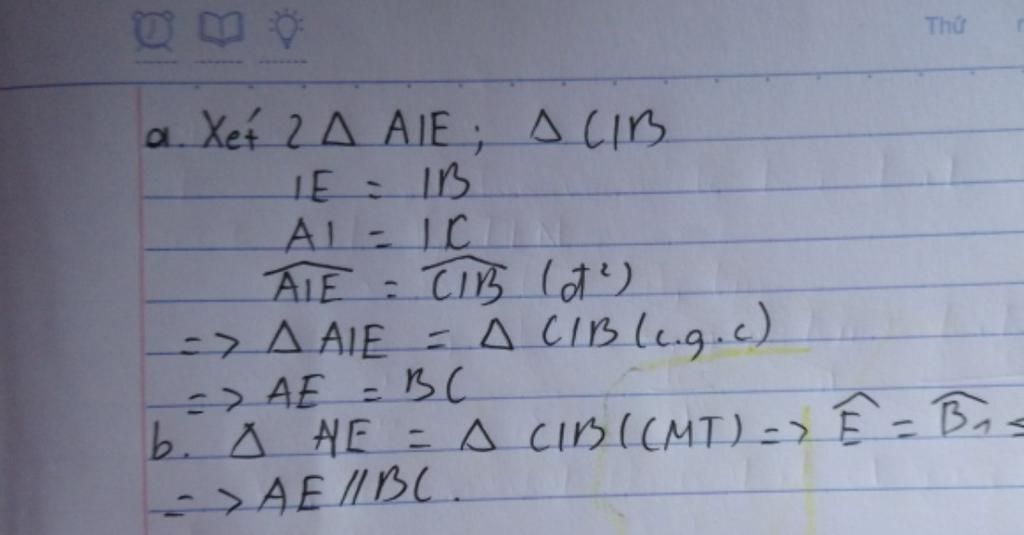 Thứ
a. Xét 2 Δ AIE; Δ CIB
IE = IB
AI = IC
\widehat{AIE} = \widehat{CIB} (đ²)
=> Δ AIE = Δ CIB (c.g.c)
=> AE = BC
b. Δ AIE = Δ CIB (CMT) => \widehat{E} = \widehat{B_1}
=> AE // BC.